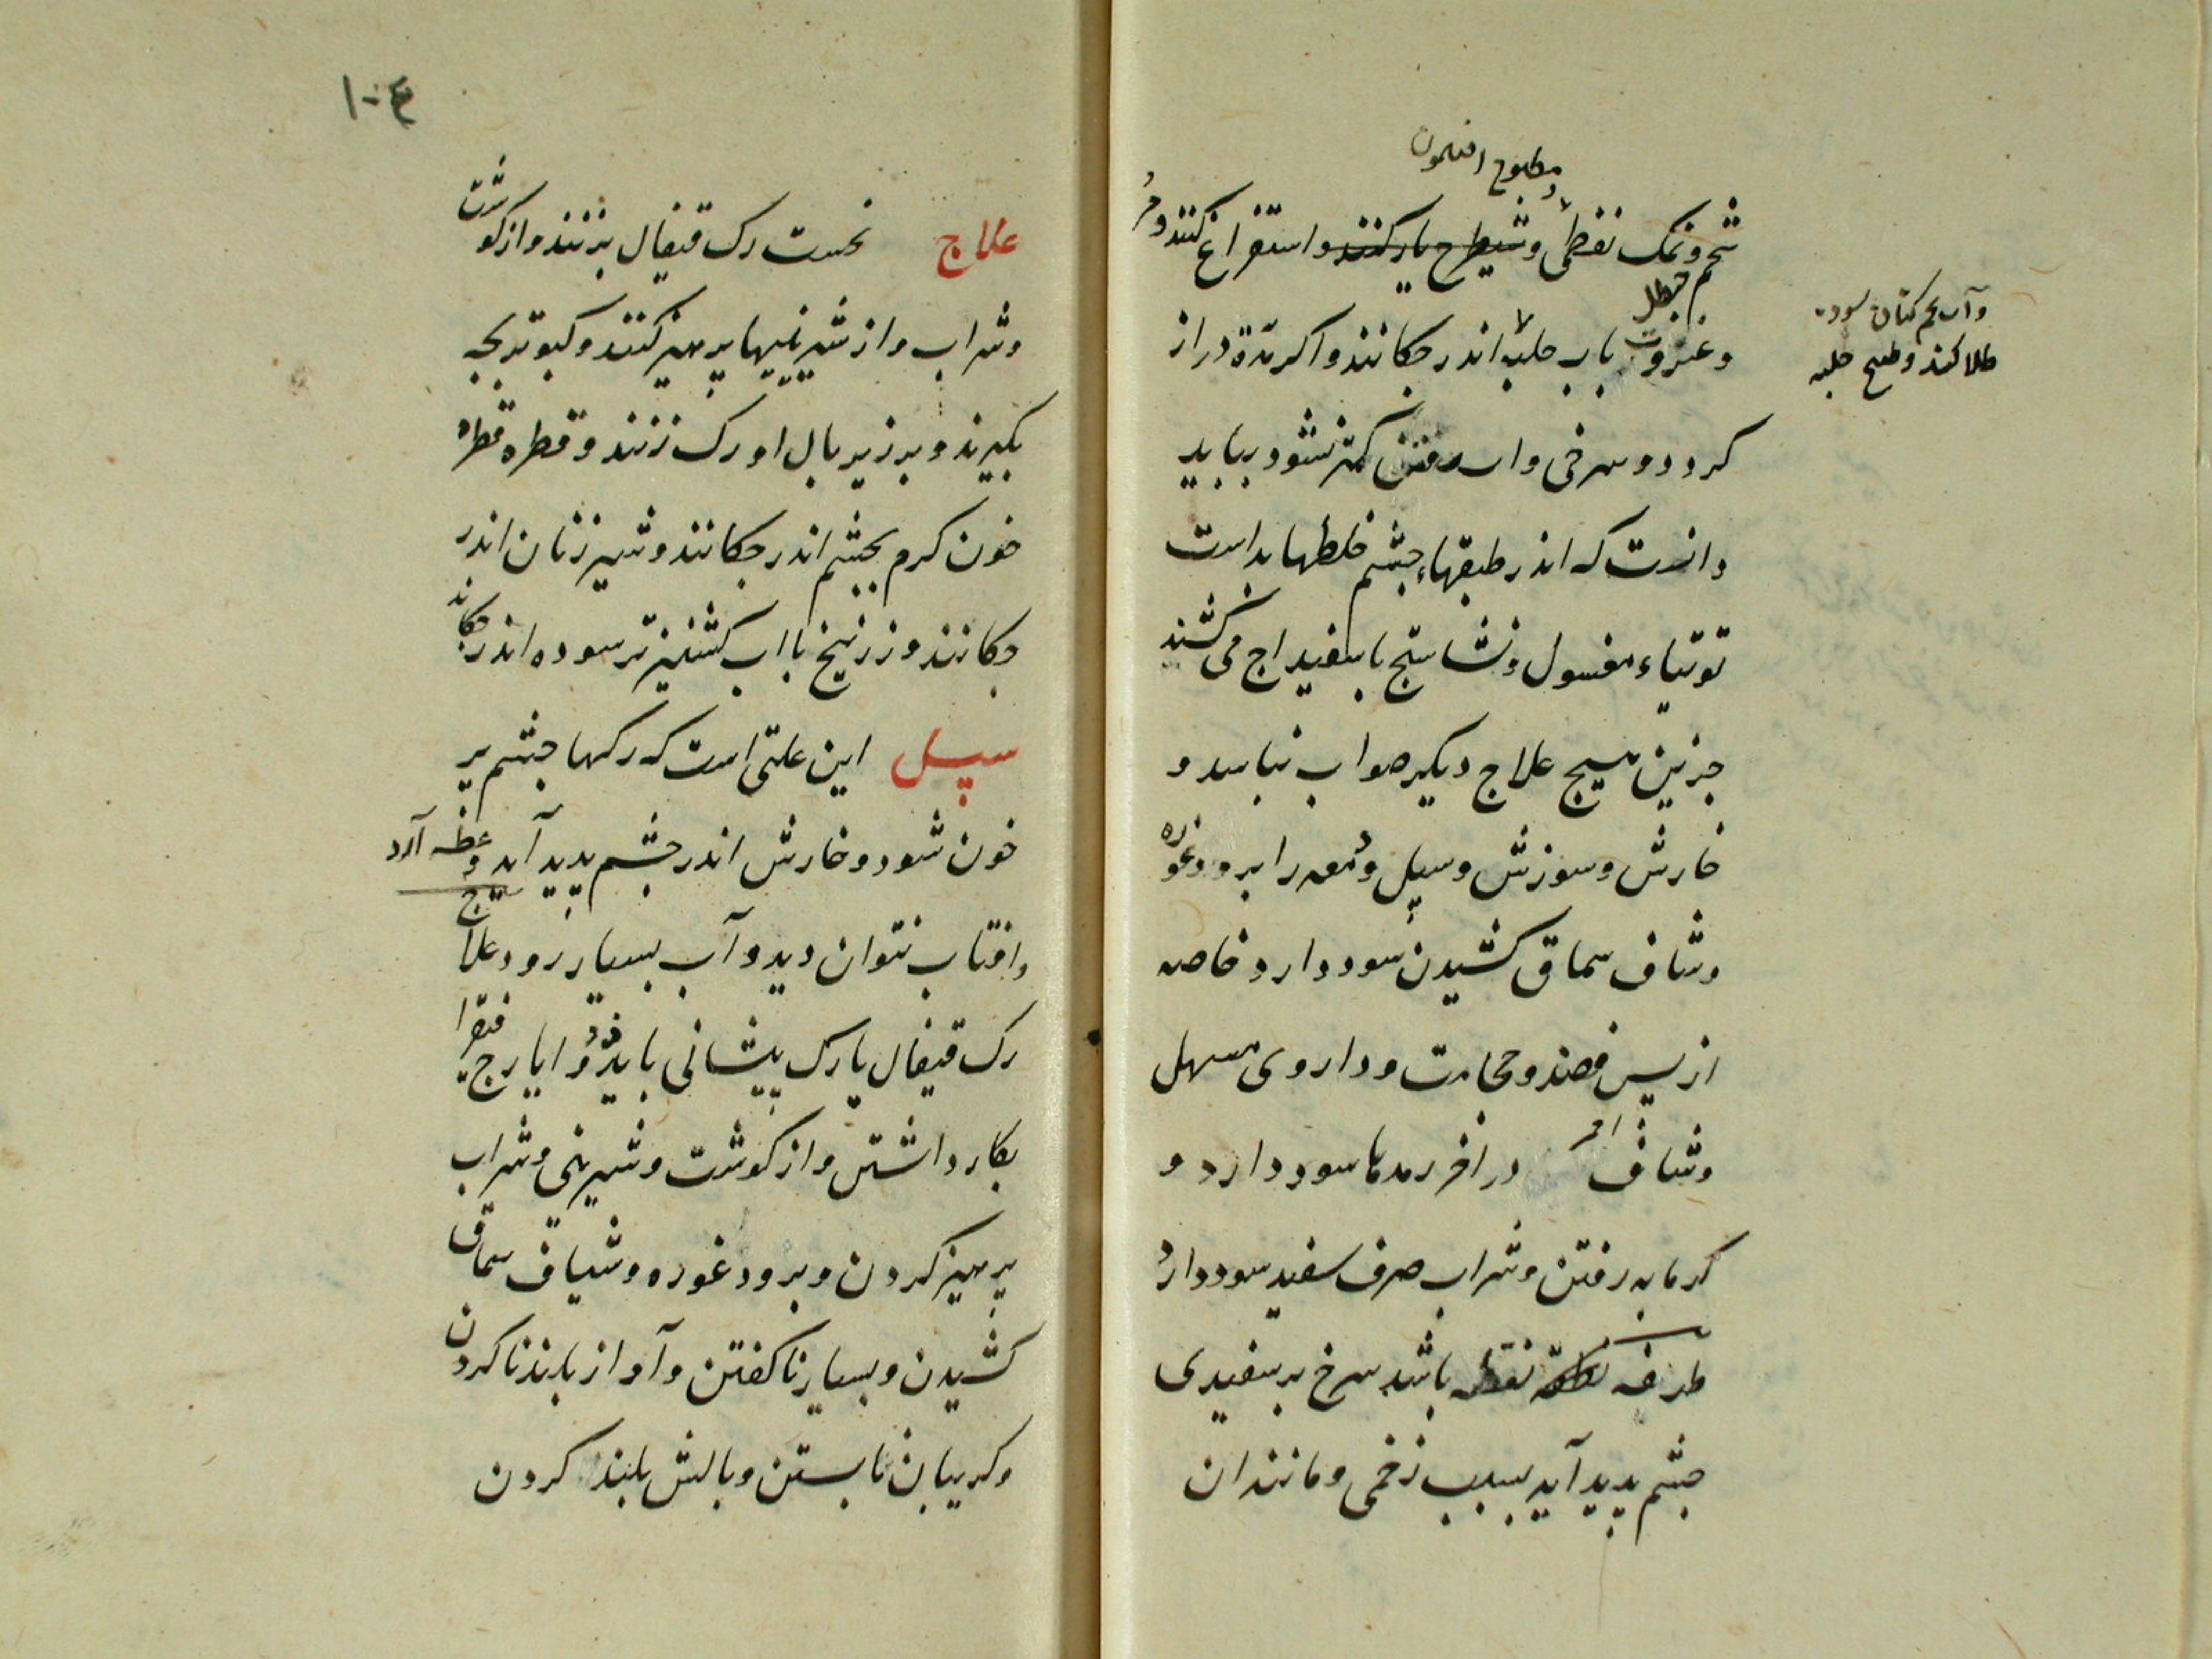 مطبوخ افتیمون
شحم و نمک نفطی و شیطرج یار کنند و استفراغ کنند و
حنظل
و عنزروت باب حلبه اندر چکانند و اکر مدّة دراز
کردد و سرخی و اب رفتن کمتر نشود بباید
دانست که اندر طبقهاء چشم خلطها بداست
توتیاء مغسول و نشاستج با سفیداج می کشند
جزین هیچ علاج دیکر صواب نباشد و
خارش و سوزش و سپل و دمعه را برود غوره
و شاف سماق کشیدن سود دارد خاصه
از پس فصد و حجامت و داروی مسهل
و شاف احمر در اخر رمدها سود دارد و
کرمابه رفتن و شراب صرف سفید سود دارد
طرفه نقطه باشد سرخ بر سفیدی
چشم پدید آید بسبب زخمی و مانند ان
و آب تخم کتان سوده
طلا کنند و طبیخ حلبه
۱۰۴
علاج نخست رک قیفال بزنند و از کوشت
و شراب و از شیرینیها پرهیز کنند و کبوتر بچه
بکیرند و بر زیر بال او رک زنند و قطره قطره
خون کرم بچشم اندر چکانند و شیر زنان اندر
چکانند و زرنیخ با اب کشنیز تر سوده اندر چکانند
سپل این علتی است که رکها چشم پر
خون شود و خارش اندر چشم پدید آید و عطسه آرد
و افتاب نتوان دید و آب بسیار رود علاج
رک قیفال یا رک پیشانی باید زد و ایارج فیقرا
بکار داشتن و از کوشت و شیرینی و شراب
پرهیز کردن و برود غوره و شیاف سماق
کشیدن و بسیار ناکفتن و آواز بلند ناکردن
و کریبان نابستن و بالش بلند کردن